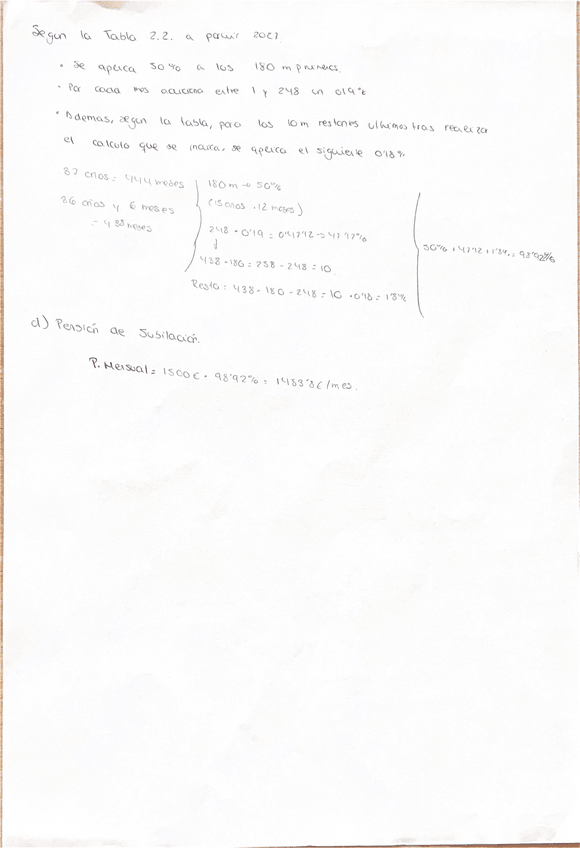 Segun la Tabla 2.2. a partir 2027.
· Se aplica 50% a los 180 m primeros.
· Por cada mes adicional entre 1 y 248 un 0'19%
· Ademas, segun la tabla, para los 10m restantes ultimos tras realizar
el calculo que se indica, se aplica el siguiente 0'18%
37 años = 444 meses
36 años y 6 meses
= 438 meses
180 m → 50%
(15 años · 12 meses)
248 · 0'19 = 0'4712 → 47'12%
↓
438 - 180 = 258 - 248 = 10.
Resto: 438 - 180 - 248 = 10 · 0'18 = 1'8%
50% + 47'12 + 1'8% = 98'92%
d) Pensión de Jubilación.
P. Mensual = 1500€ · 98'92% = 1483'8€/mes.